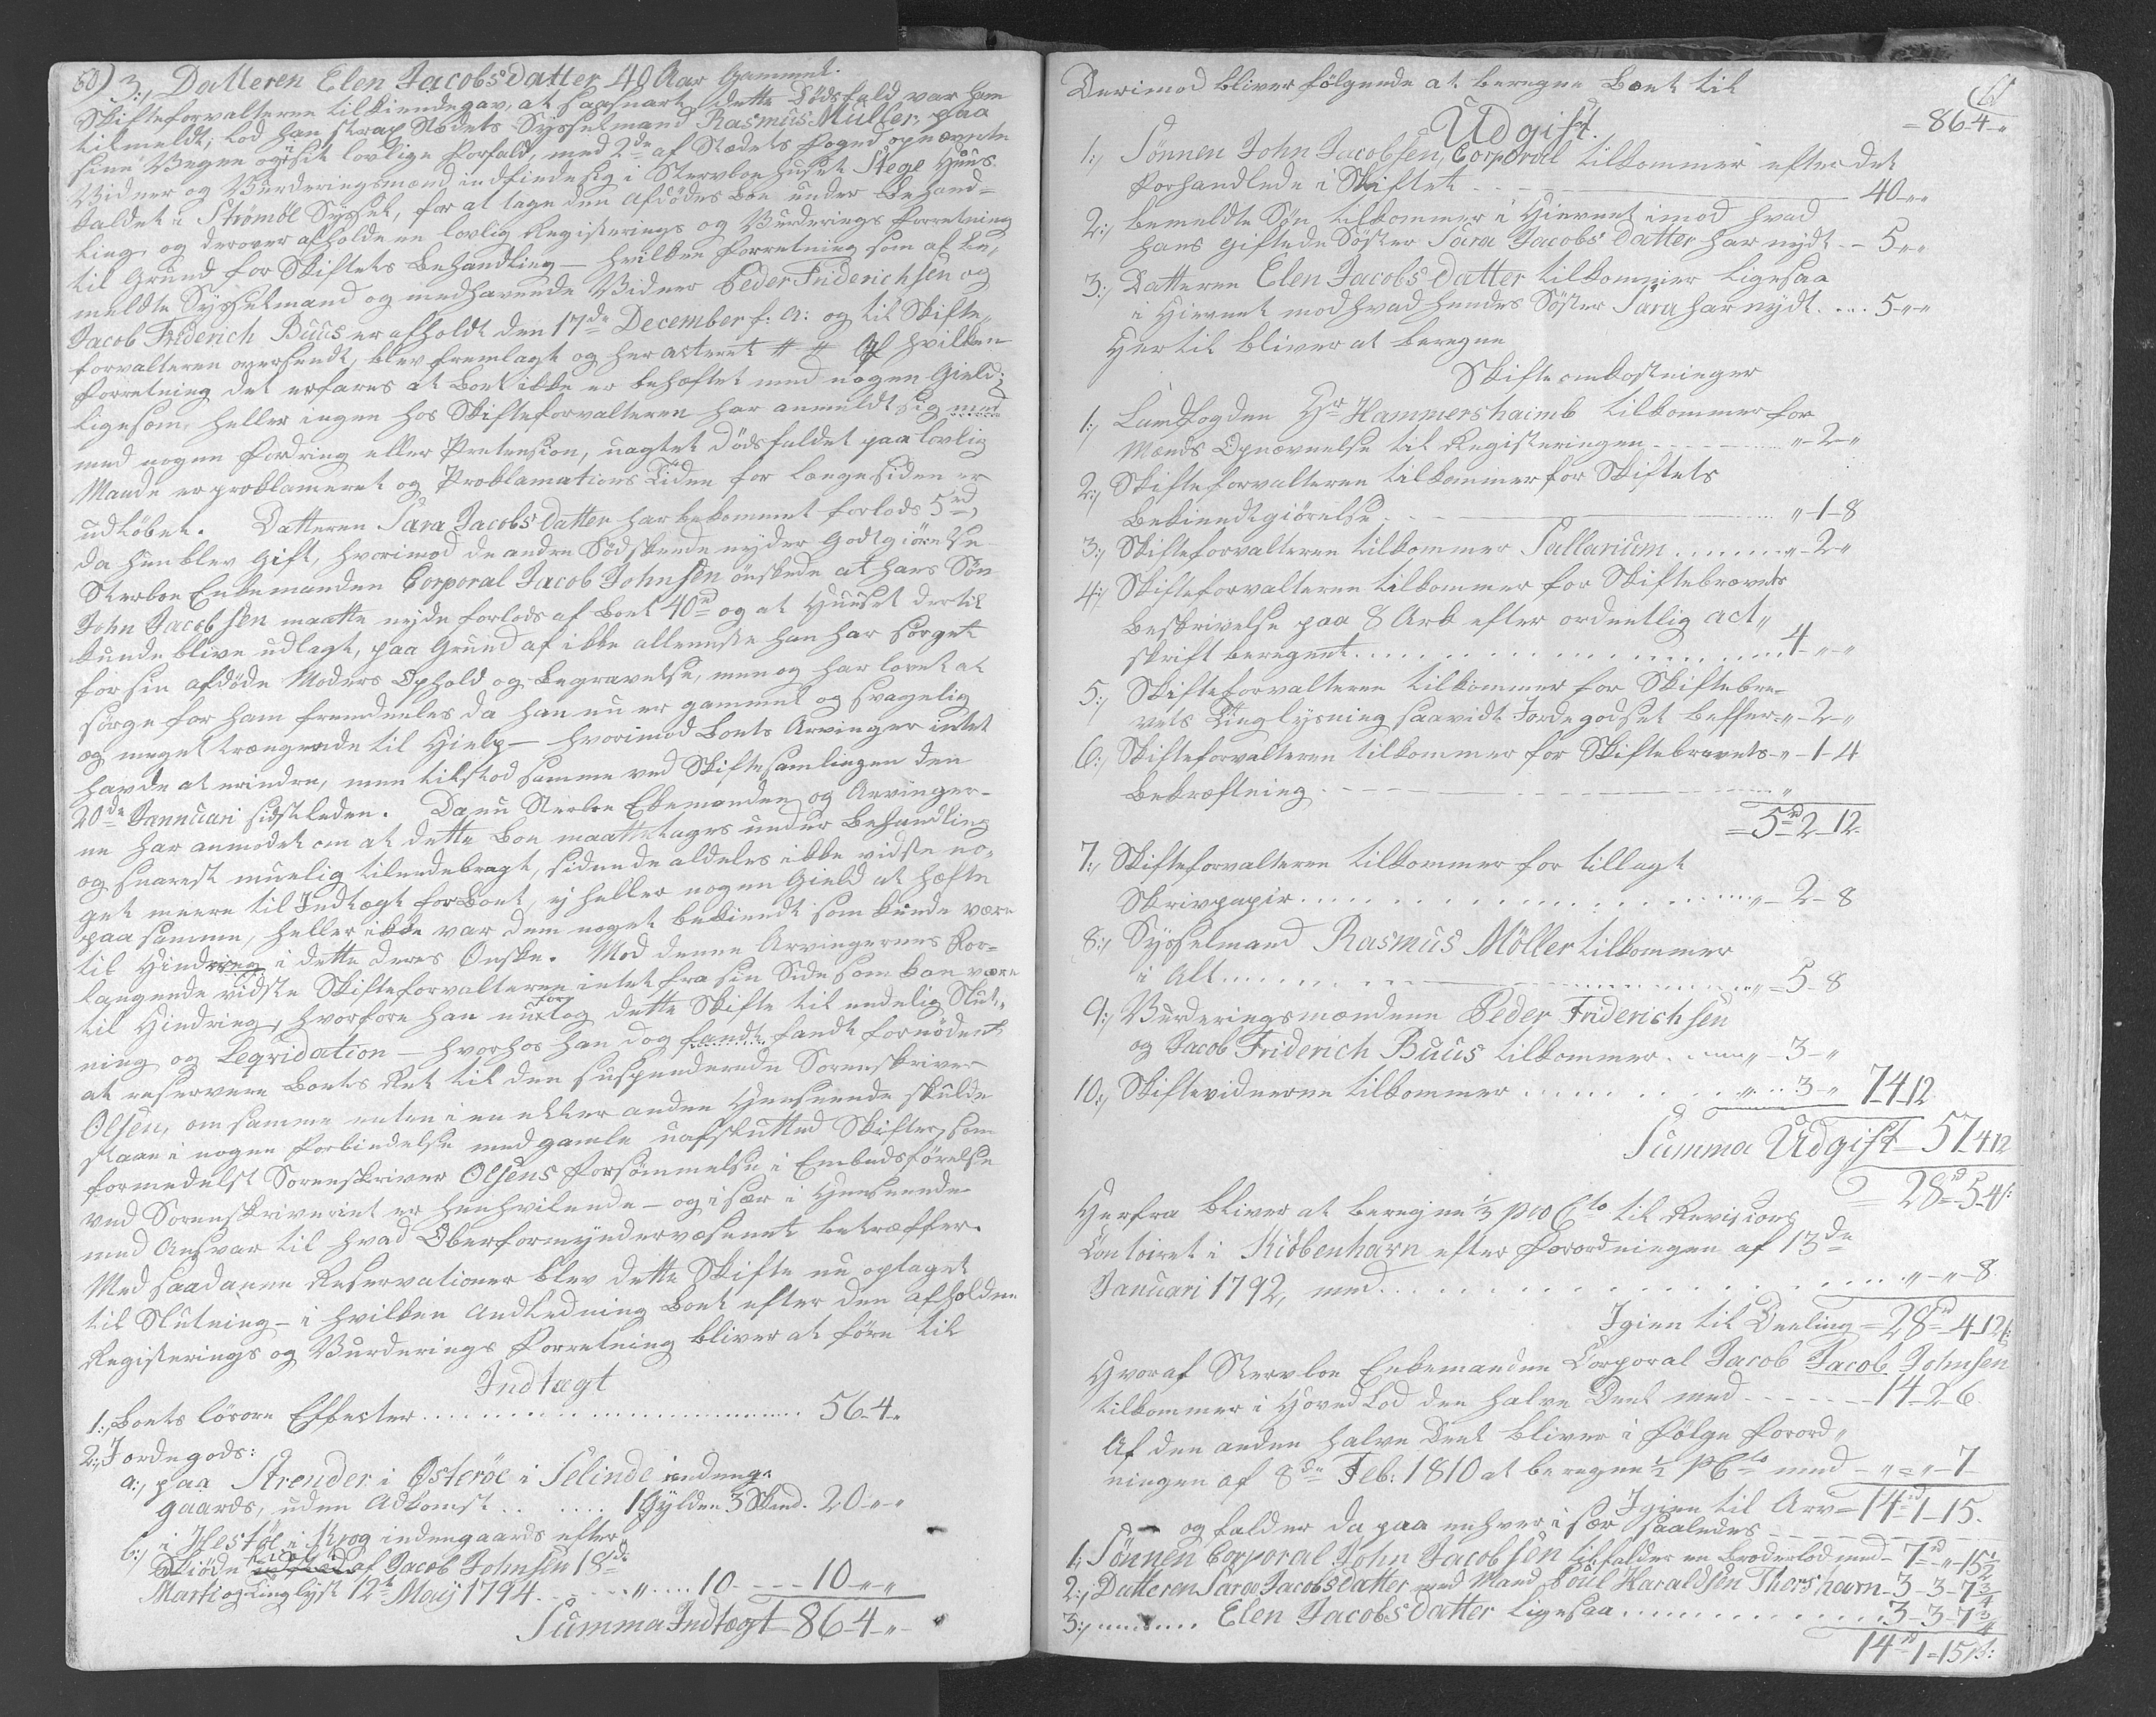 60) 3:, Datteren Elen Jacobsdatter 40 Aar Gammel.
Skifteforvalteren tilkiendegav, at saasnart dette Dödsfald var ham
tilmeldt, lod han strax Stedets Sysselmand Rasmus Müller, paa
sine Vegne og i sit lovlige Forfald, med 2de af Stædets Foged opnævnte
Vidner og Vurderingsmænd indfinde sig i Stervboehuset Stege Huus
kaldet i Strömöe Syssel, for at tage den Afdödes Boe under Behand=
ling og derover afholde en lovlig Registerings og Vurderings Forretning
til Grund for Skiftets Behandling — hvilken Forretning som af be,,
meldte Sysselmand og medhavende Vidner Peder Friderichsen og
Jacob Friderich Buus er afholdt den 17de December f: A: og til Skifte,,
forvalteren oversendt, blev fremlagt og her acteret # # Af hvilken
Forretning det erfares at Boet ikke er behæftet med nogen Gield;
ligesom, heller ingen hos Skifteforvalteren har anmeldt sig med
med nogen Fordring eller Pretension, uagtet Dödsfaldet paa lovlig
Maade er proklameret og Proklamations Tiden for længe siden er
udlöbet. Datteren Sara Jacobsdatter har bekommet forlods 5rd,
da hun blev Gift, hvorimod de andre Södskende nyder Godtgiörelse
Sterboe Enkemanden Corporal Jacob Johnsen önskede at hans Sön
John Jacobsen maatte nyde forlods af Boet 40rd og at Huuset dertil
kunde blive udlagt, paa Grund af ikke alleneste han har sörget
for sin afdöde Moders Ophold og Begravelse, men og har lovet at
sörge for ham fremdeeles da han nu er gammel og svagelig
og meget trængende til Hielp — hvorimod Boets Arvinger intet
havde at erindre, men tilstod samme ved Skiftesamlingen den
20de Jannuari sidstleden. Da nu Sterboe Ekemanden og Arvinger-
ne har anmodet om at dette Boe maatte tages under Behandling
og snarest muelig tilendebragt, siden de aldeles ikke vidste no,,
get meere til Indtægt for Boet, ej heller nogen Gield at hæfte
paa samme, heller ikke var dem noget bekiendt som kunde være
til Hindring i dette deres Önske. Mod denne Arvingernes For=
langende vidste Skifteforvalteren intet fra sin Side som kan være
til Hindring, hvorfore han nu for tog dette Skifte til endelig Slut,,
ning og Leqvidation — hvorhos han dog fandt fandt fornödent
at reservere Boets Ret til den suspenderede Sorenskriver
Olsen, om samme enten i en eller anden Henseende skulde
staae i nogen Forbindelse med gamle uafslutted Skifter, som
formedelst Sorenskriver Olsens Forsömmelse i Embedsförelse
ved Sorenskriveriet er henhvilende — og i sær i Henseende
med Ansvar til hvad Oberformynderväsenet betræffer.
Med saadanne Reservationer blev dette Skifte nu optaget
til Slutning — i hvilken Andledning Boet efter den afholdne
Registerings og Vurderings Forretning bliver at före til
Indtægt
1:, Boets lösöre Effecter .......... 56-4-"
2:, Jordegods:
a:, paa Strender i Österöe i Selinde indenge
gaards, uden Adkomst ........ 1 Gylden 3 Skind. 20-"-"
b:, i Hestöe i Krog indengaards efter
Skiöde af Jacob Johnsen 18de
Marti og Tinglyst 12te Maij 1794 ...... " .... 10 - - - 10-"-"
Summa Indtægt - 86-4-"
61
Derimod bliver fölgende at beregne Boet til
= 86-4-"
Udgift.
1:, Sönnen John Jacobsen, Corporal tilkommer efter det
Forhandlede i Skiftet - - - 40-"-"
2:, bemeldte Sön tilkommer i Hievnet imod hvad
hans giftede Söster Sara Jacobsdatter har nydt - - 5-"-"
3:, Datteren Elen Jacobsdatter tilkommer ligesaa
i Hievnet mod hvad hendes Söster Sara har nydt .... 5-"-"
Hertil bliver at beregne
Skifteomkostninger
1:, Landfogden Hr Hammershaimb tilkommer for
Mænds Opnævnelse til Registeringen - - - "-2-"
2:, Skifteforvalteren tilkommer for Skiftets
Bekiendtgiörelse - - - "-1-8
3:, Skifteforvalteren tilkommer Sallarium ........ "-2-"
4:, Skifteforvalteren tilkommer for Skiftebrevets
Beskrivelse paa 8 Ark efter ordentlig act,,
skrift beregnet .......... 4-"-"
5:, Skifteforvalteren tilkommer for Skiftebre-
vets Tinglysning saavidt Jordegodset beffer= "-2-"
6:, Skifteforvalteren tilkommer for Skiftebrevets - "-1-4
Bekræftning - - - "
= 5rd 2-12-
7:, Skifteforvalteren tilkommer for tillagt
Skrivpapir .......... "-2-8
8:, Sysselmand Rasmus Möller tilkommer
i Alt .......... "=5-8
9:, Vurderingsmændene Peder Friderichsen
og Jacob Friderich Buus tilkommer ...... "-3-"
10:, Skiftevidnerne tilkommer .......... "..3-" 7-4-12
Summa Udgift - 57-4-12
= 28rd=5-4s:
Herfra bliver at beregne 1/3 pro Cto til Revisions
Contoiret i Kiöbenhavn efter Forordningen af 13de
Januari 1792, med .......... "-"-8
Igien til Deeling = 28rd-4-12s:
Hvoraf Stervboe Enkemanden Corporal Jacob Jacob Johnsen
tilkommer i Hoved Lod den halve Deel med - - - 14-2-6
Af den anden halve Deel bliver i fölge Forord,,
ningen af 8de Feb: 1810 at beregne 1/2 pCto med - "="-7-
Igien til Arv = 14rd-1-15.
og falder da paa enhver i sær saaledes - - -
1:, Sönnen Corporal John Jacobsen tilfalder en Broderlod med - 7rd-"-15 1/2
2:, Datteren Sara Jacobsdatter med Mand Poul Haraldsen Thorshavn - 3-3-7 3/4
3:, ........ Elen Jacobsdatter ligesaa .......... 3-3-7 3/4
14rd-1=15s: